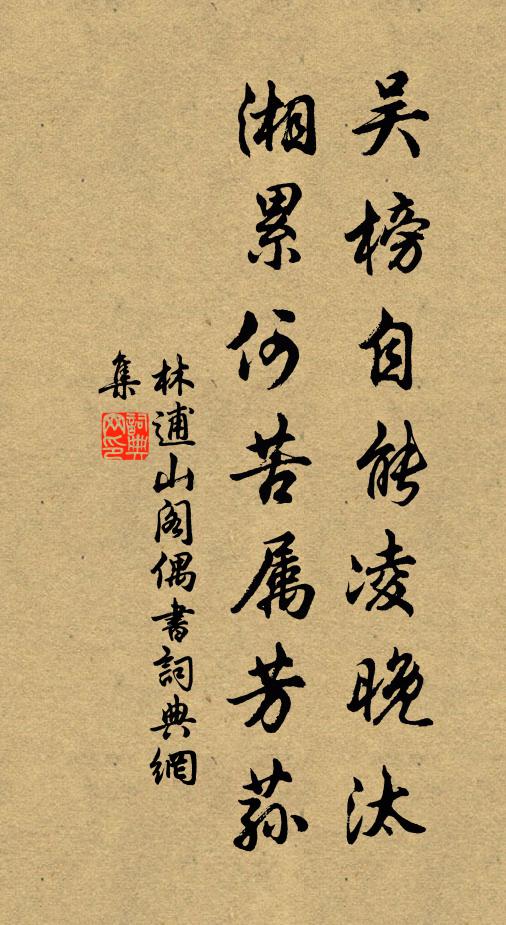 吴榜自能凌晚汰
湘累何苦属芳荪
林逋山阁偶书詞典網
集
詞典網印